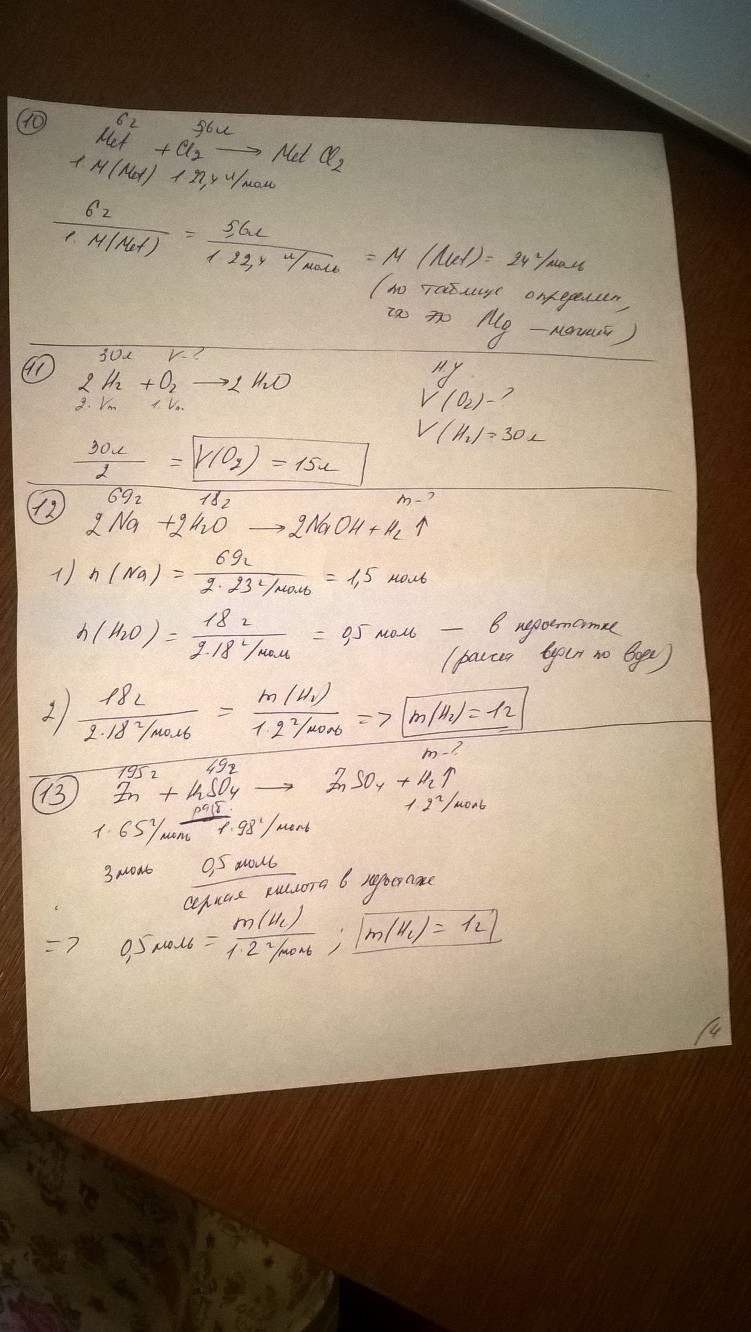 10
6г 5,6л
Met + Cl2 → Met Cl2
1·M(Met) 1·22,4 л/моль
6г / 1·M(Met) = 5,6л / 1·22,4 л/моль = M (Met) = 24 г/моль
(по таблице определим,
что это Mg – магний)
11
30л V-?
2H2 + O2 → 2H2O
2·Vm 1·Vm
н.у.
V(O2)-?
V(H2)=30л
30л / 2 = V(O2) = 15л
12
69г 18г m-?
2Na + 2H2O → 2NaOH + H2 ↑
1) n(Na) = 69г / 2·23 г/моль = 1,5 моль
n(H2O) = 18г / 2·18 г/моль = 0,5 моль — в недостатке
(расчет ведем по воде)
2) 18г / 2·18 г/моль = m(H2) / 1·2 г/моль => m(H2) = 1г
13
195г 49г m-?
Zn + H2SO4 → ZnSO4 + H2↑
разб.
1·65 г/моль 1·98 г/моль 1·2 г/моль
3 моль 0,5 моль
серная кислота в недостатке
=> 0,5 моль = m(H2) / 1·2 г/моль ; m(H2) = 1г
(4